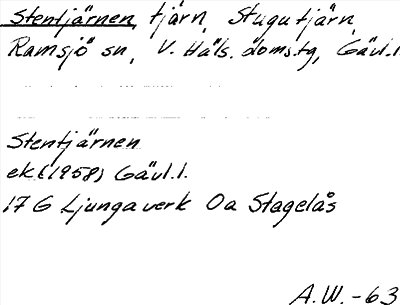 Stentjärnen, tjärn, Stugutjärn,
Ramsjö sn, V. Häls. doms.tg, Gävl.l.
Stentjärnen
ek. (1958) Gävl.l.
17 G Ljungaverk 0a Stagelås
A.W. -63